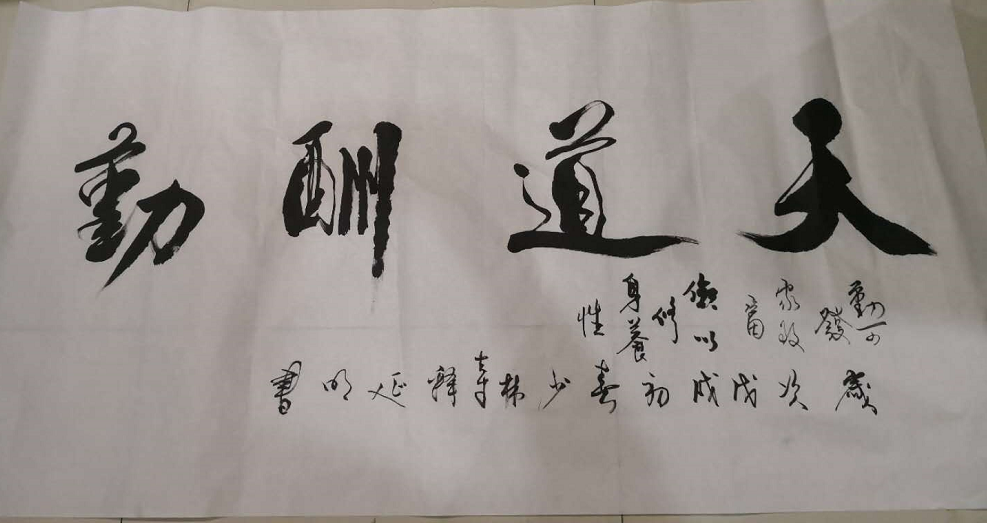 天道酬勤
勤可發家致富儉以修身養性
歲次戊戌初春少林寺釋延明書